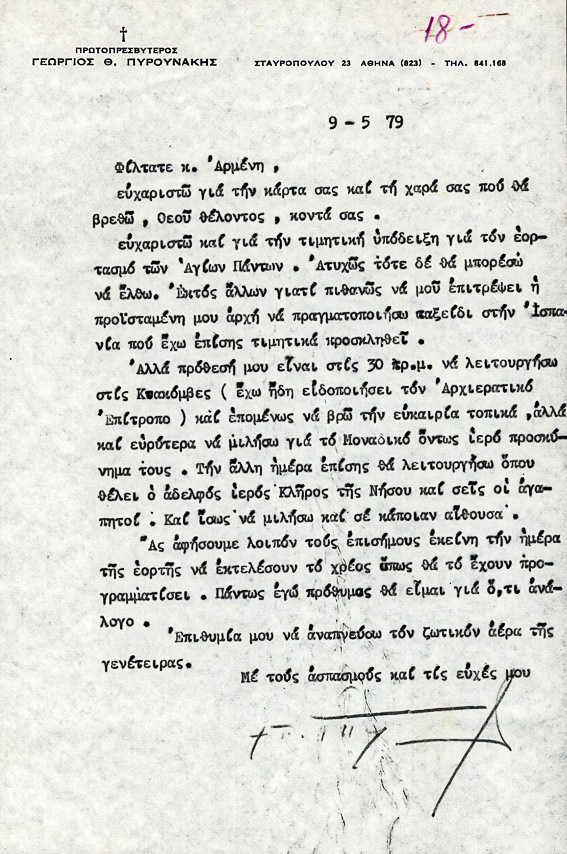 18-
ΠΡΩΤΟΠΡΕΣΒΥΤΕΡΟΣ
ΓΕΩΡΓΙΟΣ Θ. ΠΥΡΟΥΝΑΚΗΣ
ΣΤΑΥΡΟΠΟΥΛΟΥ 23 ΑΘΗΝΑ (823) - ΤΗΛ. 841.168
9 - 5 79
Φίλτατε κ. Ἀρμένη ,
εὐχαριστῶ γιά τήν κάρτα σας καί τή χαρά σας πού θά
βρεθῶ , Θεοῦ θέλοντος , κοντά σας .
εὐχαριστῶ καί γιά τήν τιμητική ὑπόδειξη γιά τόν ἑορ-
τασμό τῶν Ἁγίων Πάντων . Ἀτυχῶς τότε δέ θά μπορέσω
νά ἔλθω. Ἐκτός ἄλλων γιατί πιθανῶς νά μοῦ ἐπιτρέψει ἡ
προϊσταμένη μου ἀρχή νά πραγματοποιήσω ταξείδι στήν Ἱσπα-
νία πού ἔχω ἐπίσης τιμητικά προσκληθεῖ .
Ἀλλά πρόθεσή μου εἶναι στίς 30 πρ.μ. νά λειτουργήσω
στίς Κατακόμβες ( ἔχω ἤδη εἰδοποιήσει τόν Ἀρχιερατικό
Ἐπίτροπο ) καί ἑπομένως νά βρῶ τήν εὐκαιρία τοπικά ,ἀλλά
καί εὐρύτερα νά μιλήσω γιά τό Μοναδικό ὄντως ἱερό προσκύ-
νημα τους . Τήν ἄλλη ἡμέρα ἐπίσης θά λειτουργήσω ὅπου
θέλει ὁ ἀδελφός ἱερός Κλῆρος τῆς Νήσου καί σεῖς οἱ ἀγα-
πητοί . Καί ἴσως νά μιλήσω καί σέ κάποιαν αἴθουσα .
Ἄς ἀφήσουμε λοιπόν τούς ἐπισήμους ἐκείνη τήν ἡμέρα
τῆς ἑορτῆς νά ἐκτελέσουν τό χρέος ὅπως θά τό ἔχουν προ-
γραμματίσει . Πάντως ἐγώ πρόθυμος θά εἶμαι γιά ὅ,τι ἀνά-
λογο .
Ἐπιθυμία μου νά ἀναπνεύσω τόν ζωτικόν ἀέρα τῆς
γενέτειρας.
Μέ τούς ἀσπασμούς καί τίς εὐχές μου